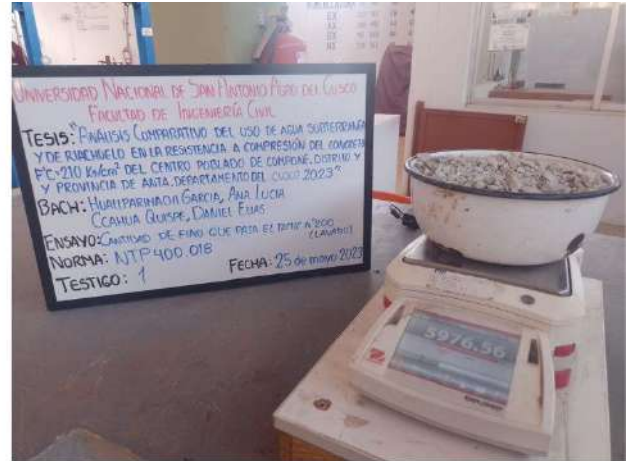 UNIVERSIDAD NACIONAL DE SAN ANTONIO ABAD DEL CUSCO
FACULTAD DE INGENIERÍA CIVIL
TESIS: "ANÁLISIS COMPARATIVO DEL USO DE AGUA SUBTERRANEA
Y DE RIACHUELO EN LA RESISTENCIA A COMPRESIÓN DEL CONCRETO
F'C=210 KG/CM² DEL CENTRO POBLADO DE COMPONE, DISTRITO Y
Y PROVINCIA DE ANTA, DEPARTAMENTO DEL CUSCO 2023"
BACH: HUALLPARINACHI GARCIA, ANA LUCIA
CCAHUA QUISPE, DANIEL ELIAS
ENSAYO: CANTIDAD DE FINO QUE PASA EL TAMIZ N°200
(LAVADO)
NORMA: NTP 400.018
FECHA: 25 de mayo 2023
TESTIGO: 1
5976.56
OHAUS